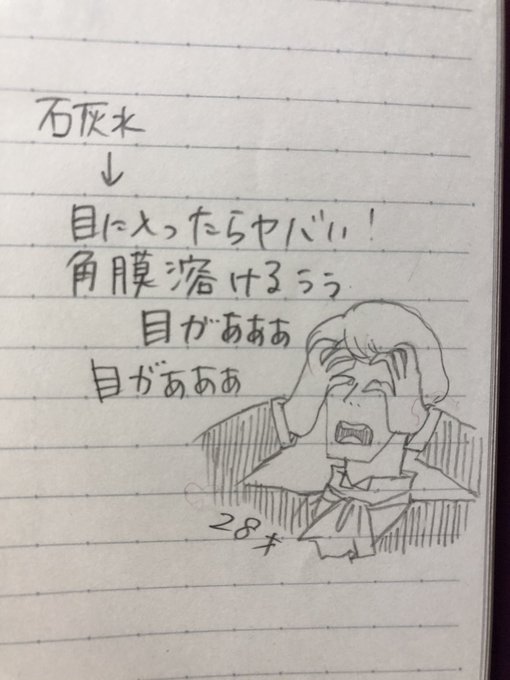 石灰水
↓
目に入ったらヤバい!
角膜溶けるぅぅ
目がぁぁぁ
目がぁぁぁ
28才